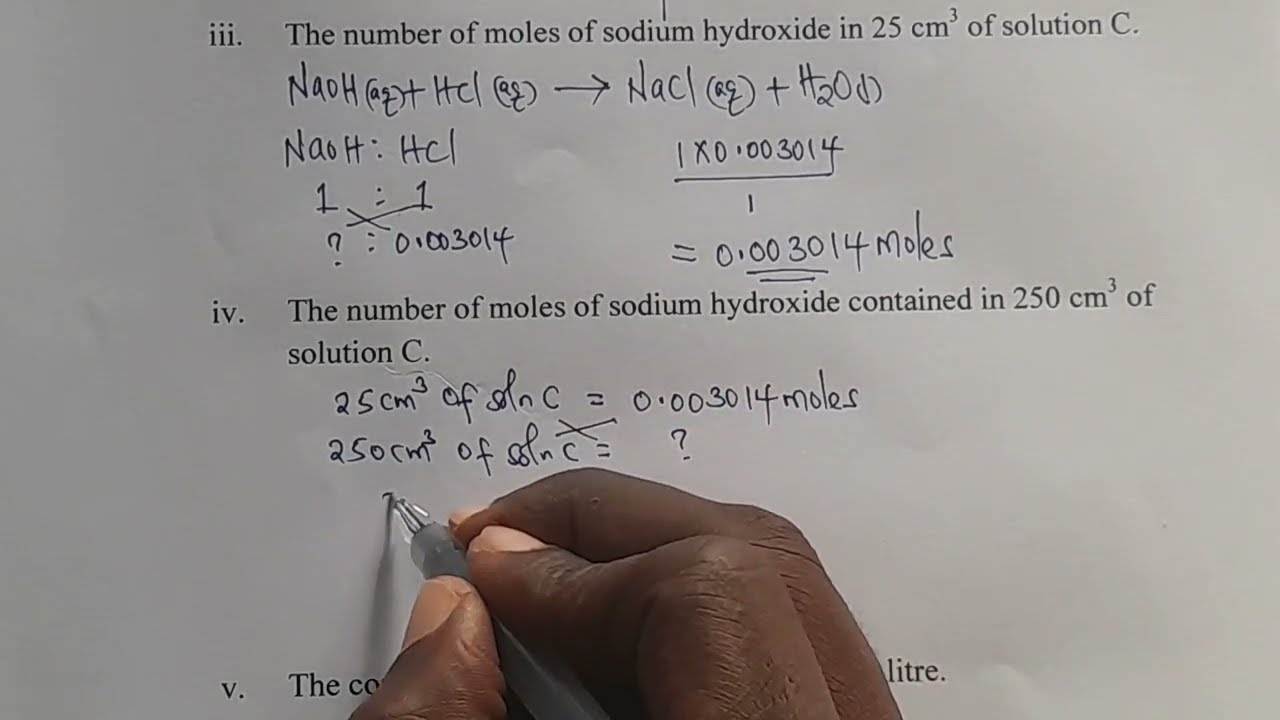 iii. The number of moles of sodium hydroxide in 25 cm³ of solution C.
NaOH(aq) + HCl (aq) → NaCl (aq) + H₂O(l)
NaOH : HCl
1 × 0.003014
1 : 1
1
? : 0.003014
= 0.003014 moles
iv. The number of moles of sodium hydroxide contained in 250 cm³ of
solution C.
25cm³ of soln C = 0.003014 moles
250cm³ of soln C = ?
v. The litre.